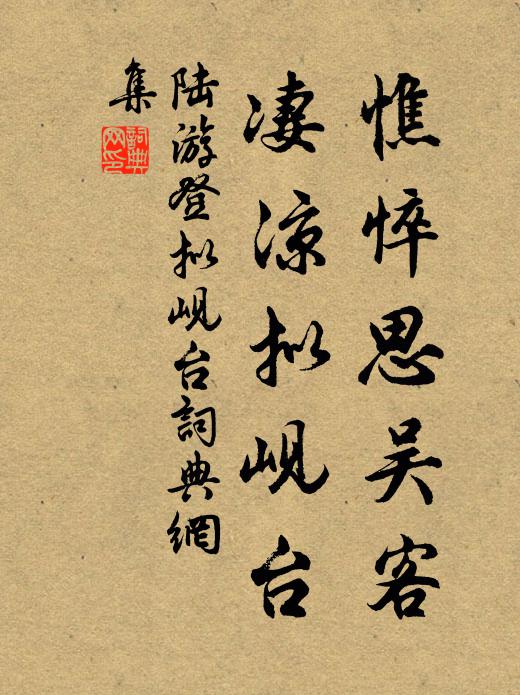 憔悴思吴客
凄凉拟岘台
陆游登拟岘台詞典網
集
詞典网印